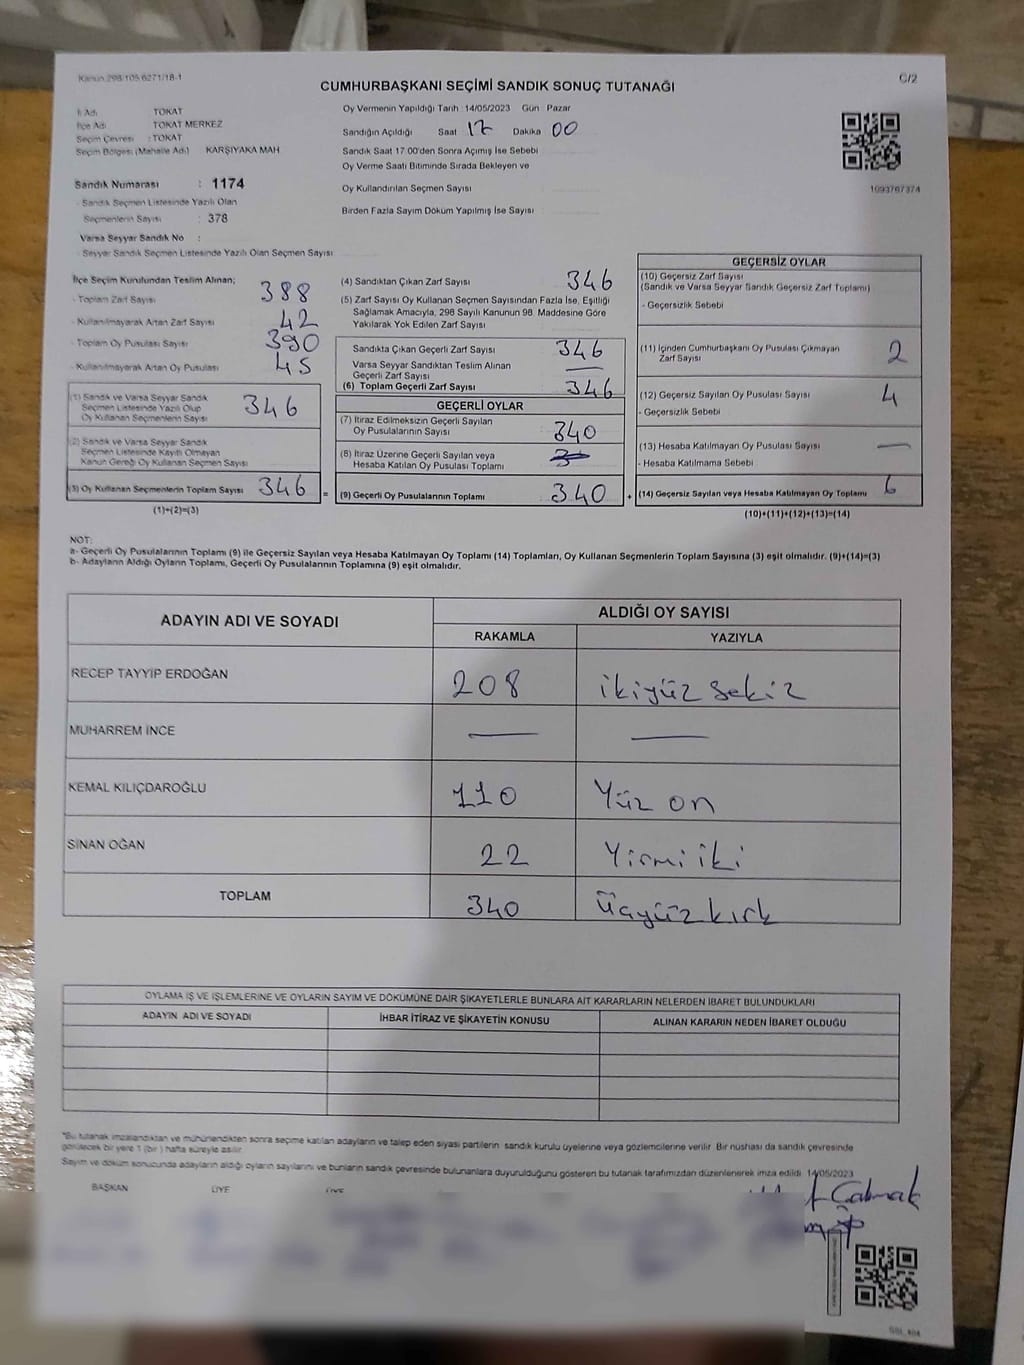 Kanun 298/105 6271/18-1
C/2
CUMHURBAŞKANI SEÇİMİ SANDIK SONUÇ TUTANAĞI
İl Adı TOKAT
İlçe Adı TOKAT MERKEZ
Seçim Çevresi : TOKAT
Seçim Bölgesi (Mahalle Adı) KARŞIYAKA MAH
Oy Vermenin Yapıldığı Tarih :14/05/2023 Gün Pazar
Sandığın Açıldığı Saat 17 Dakika 00
Sandık Saat 17:00'den Sonra Açılmış İse Sebebi
Oy Verme Saati Bitiminde Sırada Bekleyen ve
Oy Kullandırılan Seçmen Sayısı
Birden Fazla Sayım Döküm Yapılmış İse Sayısı
1093767374
Sandık Numarası : 1174
- Sandık Seçmen Listesinde Yazılı Olan
Seçmenlerin Sayısı : 378
Varsa Seyyar Sandık No :
- Seyyar Sandık Seçmen Listesinde Yazılı Olan Seçmen Sayısı
İlçe Seçim Kurulundan Teslim Alınan;
- Toplam Zarf Sayısı 388
- Kullanılmayarak Artan Zarf Sayısı 42
- Toplam Oy Pusulası Sayısı 390
- Kullanılmayarak Artan Oy Pusulası 45
(1) Sandık ve Varsa Seyyar Sandık
Seçmen Listesinde Yazılı Olup
Oy Kullanan Seçmenlerin Sayısı 346
(2) Sandık ve Varsa Seyyar Sandık
Seçmen Listesinde Kayıtlı Olmayan
Kanun Gereği Oy Kullanan Seçmen Sayısı
(3) Oy Kullanan Seçmenlerin Toplam Sayısı 346 =
(1)+(2)=(3)
(4) Sandıktan Çıkan Zarf Sayısı 346
(5) Zarf Sayısı Oy Kullanan Seçmen Sayısından Fazla İse, Eşitliği
Sağlamak Amacıyla, 298 Sayılı Kanunun 98. Maddesine Göre
Yakılarak Yok Edilen Zarf Sayısı
Sandıkta Çıkan Geçerli Zarf Sayısı 346
Varsa Seyyar Sandıktan Teslim Alınan
Geçerli Zarf Sayısı —
(6) Toplam Geçerli Zarf Sayısı 346
GEÇERLİ OYLAR
(7) İtiraz Edilmeksizin Geçerli Sayılan
Oy Pusulalarının Sayısı 340
(8) İtiraz Üzerine Geçerli Sayılan veya
Hesaba Katılan Oy Pusulası Toplamı
(9) Geçerli Oy Pusulalarının Toplamı 340 +
GEÇERSİZ OYLAR
(10) Geçersiz Zarf Sayısı
(Sandık ve Varsa Seyyar Sandık Geçersiz Zarf Toplamı)
- Geçersizlik Sebebi
(11) İçinden Cumhurbaşkanı Oy Pusulası Çıkmayan
Zarf Sayısı 2
(12) Geçersiz Sayılan Oy Pusulası Sayısı 4
- Geçersizlik Sebebi
(13) Hesaba Katılmayan Oy Pusulası Sayısı —
- Hesaba Katılmama Sebebi
(14) Geçersiz Sayılan veya Hesaba Katılmayan Oy Toplamı 6
(10)+(11)+(12)+(13)=(14)
NOT:
a- Geçerli Oy Pusulalarının Toplamı (9) ile Geçersiz Sayılan veya Hesaba Katılmayan Oy Toplamı (14) Toplamları, Oy Kullanan Seçmenlerin Toplam Sayısına (3) eşit olmalıdır. (9)+(14)=(3)
b- Adayların Aldığı Oyların Toplamı, Geçerli Oy Pusulalarının Toplamına (9) eşit olmalıdır.
ADAYIN ADI VE SOYADI
ALDIĞI OY SAYISI
RAKAMLA YAZIYLA
RECEP TAYYİP ERDOĞAN 208 ikiyüz sekiz
MUHARREM İNCE — —
KEMAL KILIÇDAROĞLU 110 Yüz on
SİNAN OĞAN 22 Yirmi iki
TOPLAM 340 üçyüz kırk
OYLAMA İŞ VE İŞLEMLERİNE VE OYLARIN SAYIM VE DÖKÜMÜNE DAİR ŞİKAYETLERLE BUNLARA AİT KARARLARIN NELERDEN İBARET BULUNDUKLARI
ADAYIN ADI VE SOYADI İHBAR İTİRAZ VE ŞİKAYETİN KONUSU ALINAN KARARIN NEDEN İBARET OLDUĞU
*Bu tutanak imzalandıktan ve mühürlendikten sonra seçime katılan adayların ve talep eden siyasi partilerin sandık kurulu üyelerine veya gözlemcilerine verilir. Bir nüshası da sandık çevresinde
görülecek bir yere 1 (bir ) hafta süreyle asılır.
Sayım ve döküm sonucunda adayların aldığı oyların sayılarını ve bunların sandık çevresinde bulunanlara duyurulduğunu gösteren bu tutanak tarafımızdan düzenlenerek imza edildi. 14/05/2023
BAŞKAN ÜYE ÜYE
Çalmak